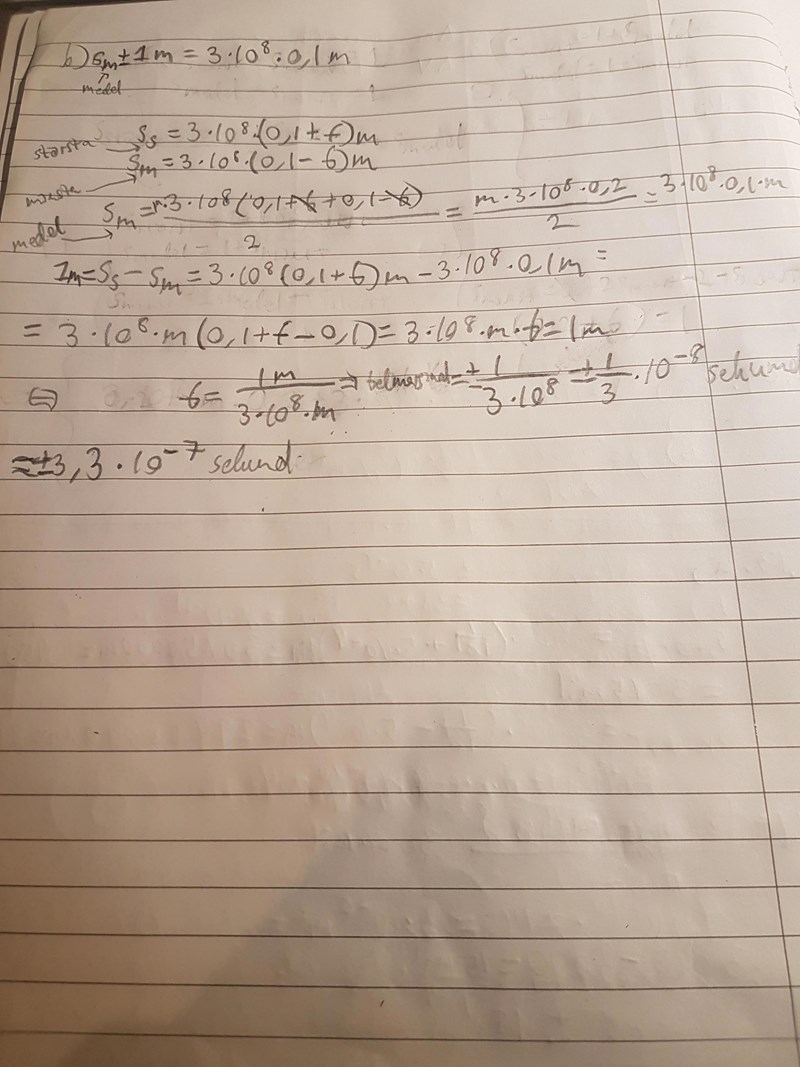 b) Sm ± 1m = 3·10⁸·0,1m
medel
största → Ss = 3·10⁸·(0,1+t)m
minsta → Sm = 3·10⁸·(0,1-t)m
medel → Sm = m·3·10⁸(0,1+t+0,1-t)/2 = m·3·10⁸·0,2/2 = 3·10⁸·0,1·m
1m = Ss - Sm = 3·10⁸(0,1+t)m - 3·10⁸·0,1m =
= 3·10⁸·m(0,1+t-0,1) = 3·10⁸·m·t = 1m
⇔ t = 1m/3·10⁸·m ⇒ = ±1/3·10⁸ = ±1/3·10⁻⁸ sekund
≈ ±3,3·10⁻⁷ sekund